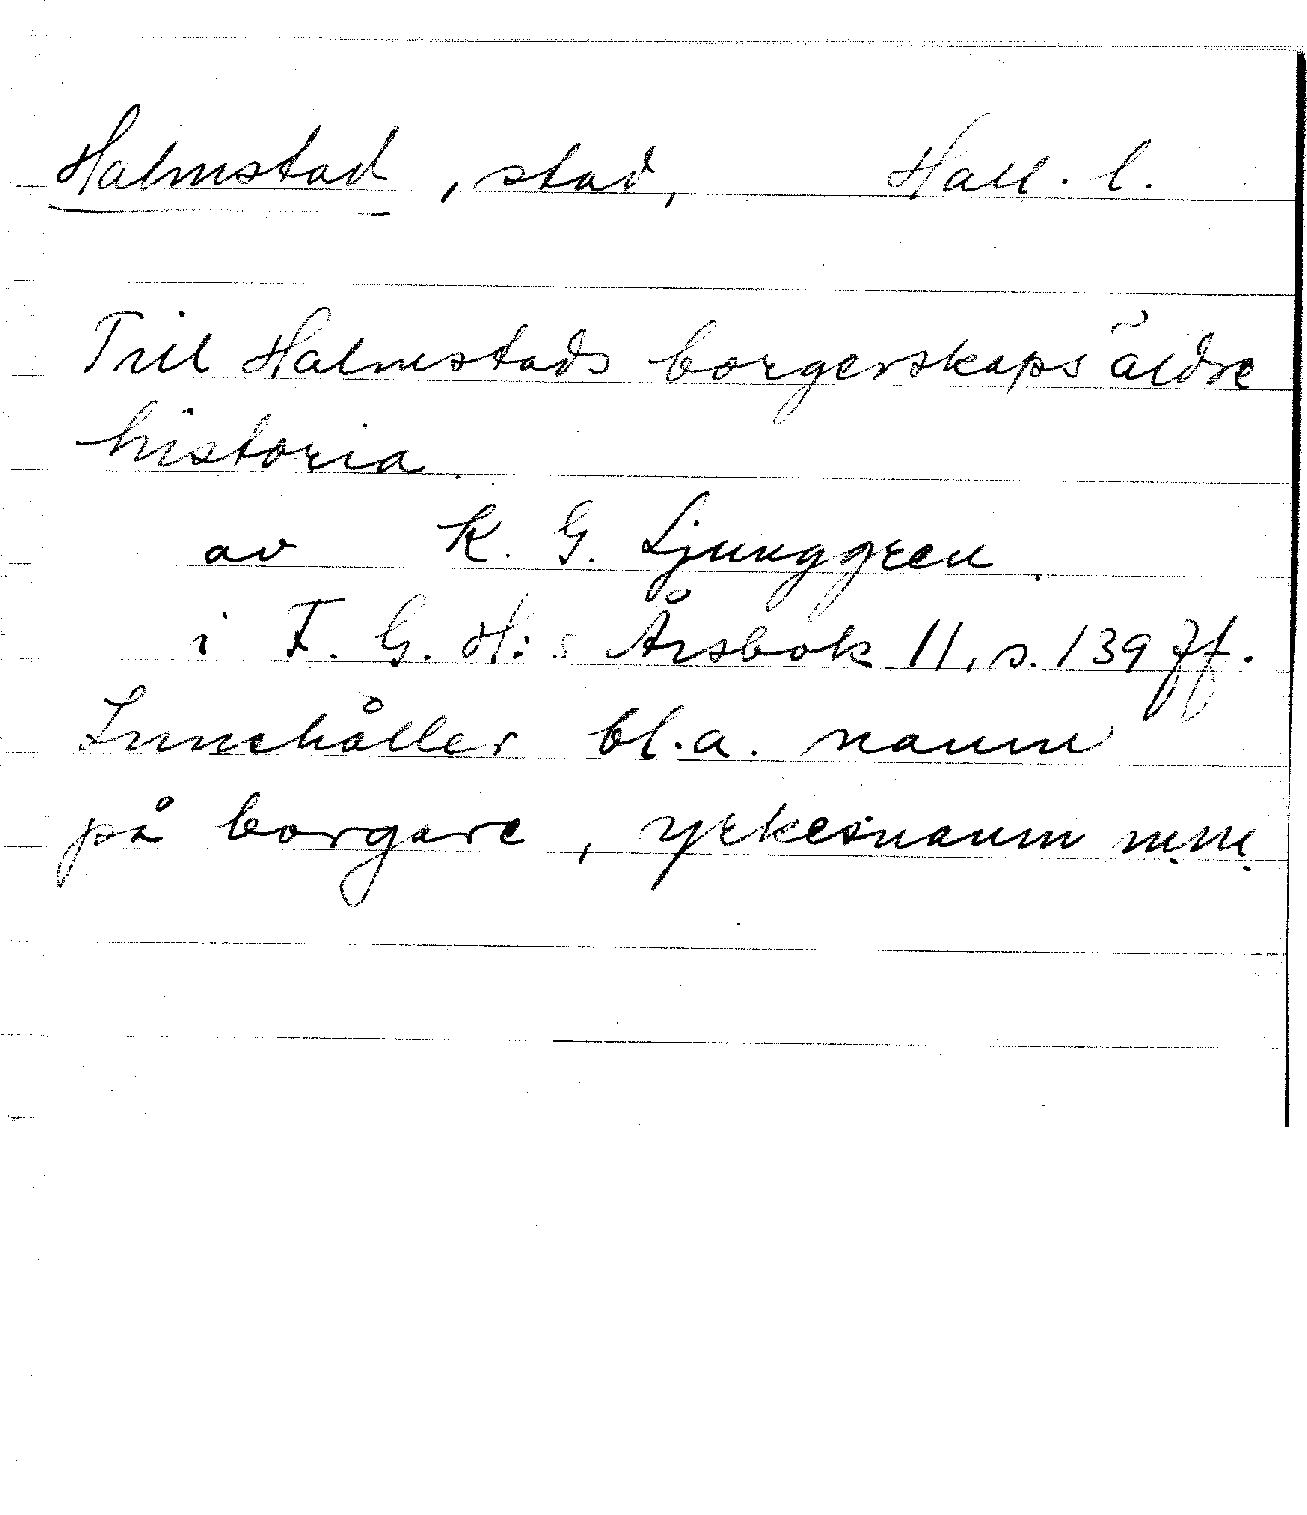 Halmstad, stad, Hall. l.
Till Halmstads borgerskaps äldre
historia.
av K. G. Ljunggren.
i F. G. H:s Årsbok 11, s. 139 ff.
Innehåller bl.a. namn
på borgare, yrkesnamn m.m.